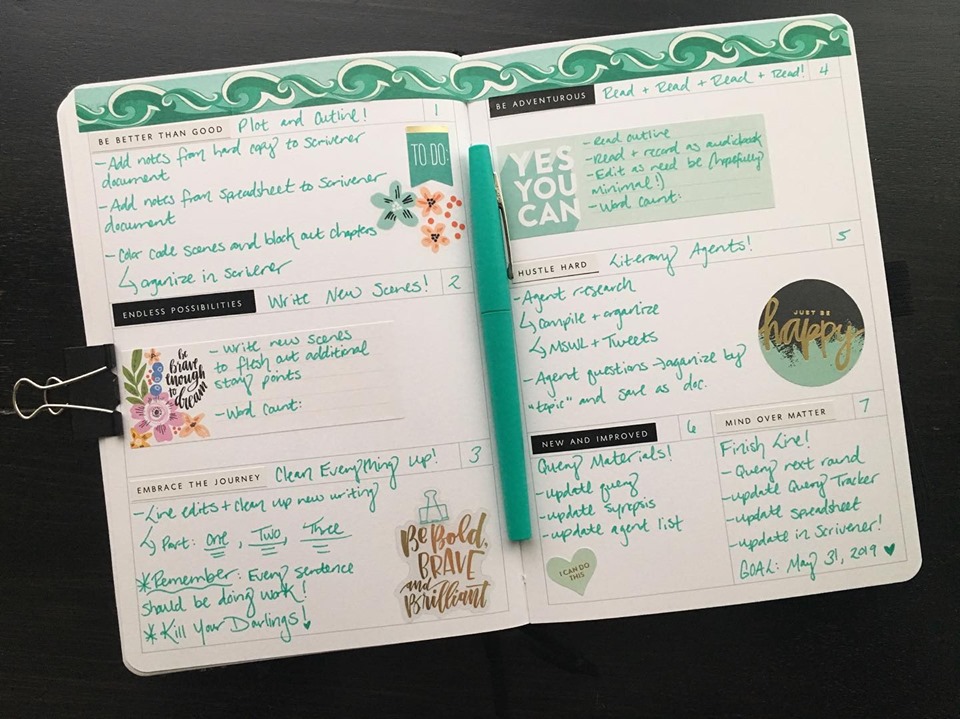 BE BETTER THAN GOOD Plot and Outline! 1
-Add notes from hard copy to Scrivener
document
-Add notes from spreadsheet to Scrivener
document
-Color code scenes and block out chapters
↳organize in scrivener
TO DO:
ENDLESS POSSIBILITIES Write New Scenes! 2
be
brave
enough
to
dream
-Write new scenes
to flesh out additional
story points
-Word count:
EMBRACE THE JOURNEY Clean Everything Up! 3
-Line edits + clean up new writing
↳Part: One, Two, Three
*Remember: Every sentence
should be doing work!
*Kill Your Darlings!
Be Bold,
BRAVE
and
Brilliant
BE ADVENTUROUS Read + Read + Read + Read! 4
YES
YOU
CAN
-Read outline
-Read + record as audiobook
-Edit as need be (hopefully
minimal!)
-Word count:
HUSTLE HARD Literary Agents! 5
-Agent research
↳compile + organize
↳MSWL + Tweets
-Agent questions→organize by
"topic" and save as doc.
JUST BE
happy
NEW AND IMPROVED 6
Query Materials!
-update query
-update synopsis
-update agent list
I CAN DO
THIS
MIND OVER MATTER 7
Finish Line!
-Query next round
-update Query Tracker
-update spreadsheet
-update in Scrivener!
GOAL: May 31, 2019 ♥